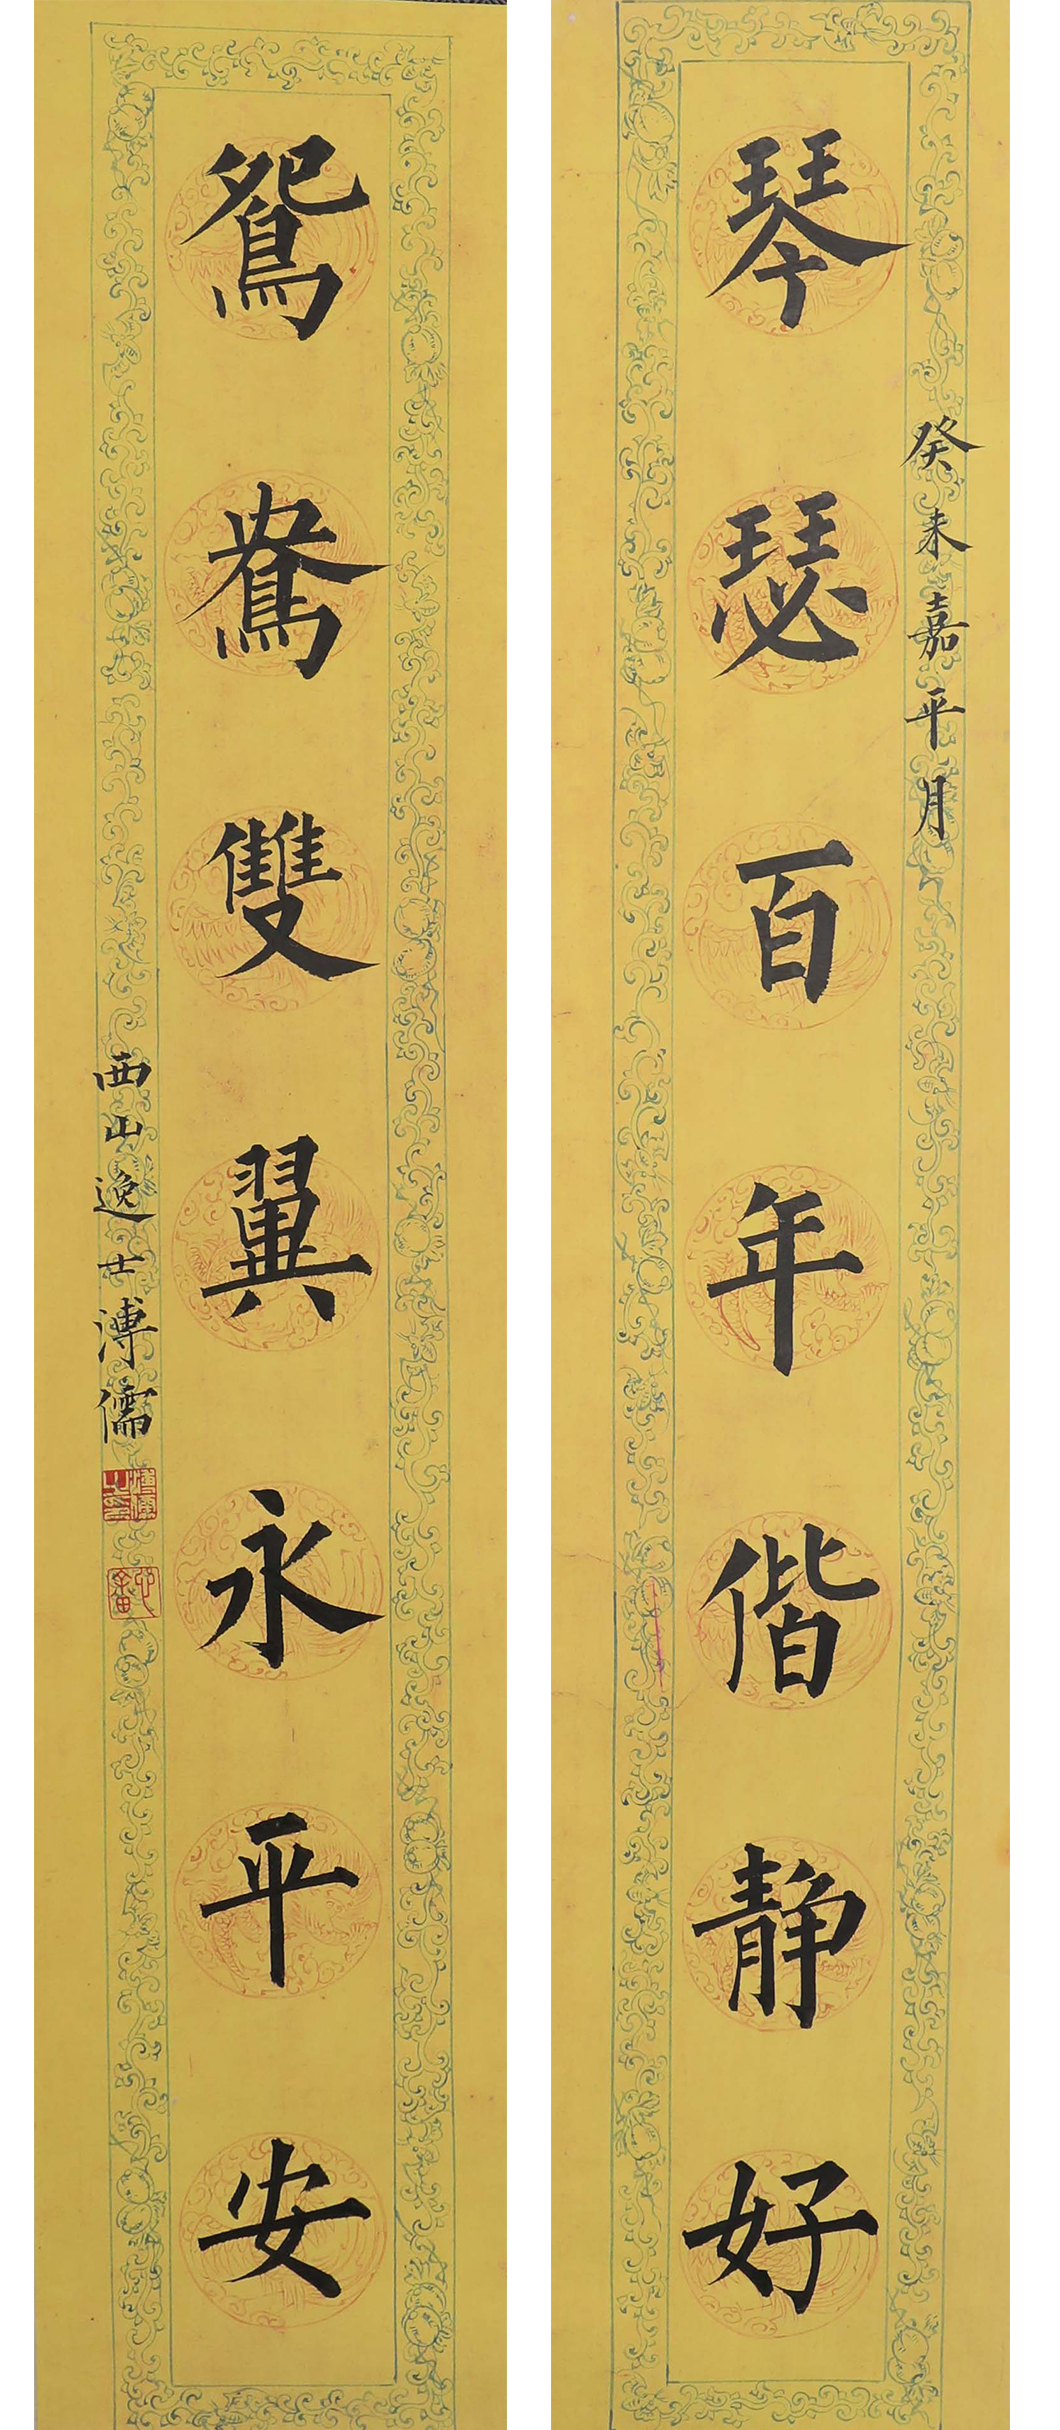 癸未嘉平月
琴瑟百年偕靜好
鴛鴦雙翼永平安
西山逸士溥儒